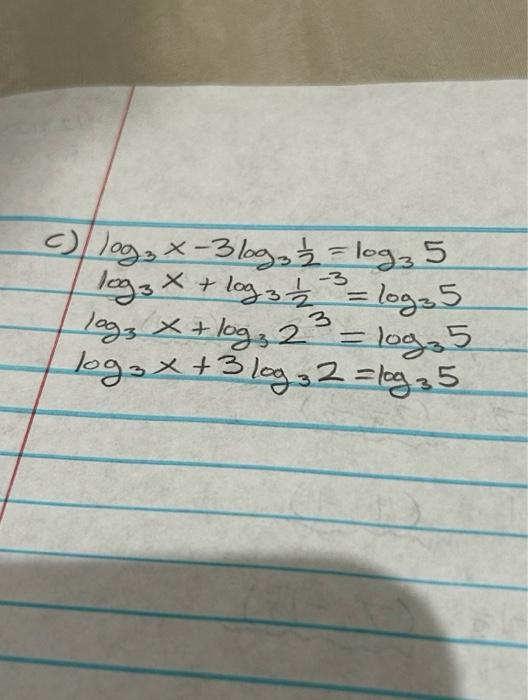 c) log₃ x - 3 log₃ ½ = log₃ 5
log₃ x + log₃ ½⁻³ = log₃ 5
log₃ x + log₃ 2³ = log₃ 5
log₃ x + 3 log₃ 2 = log₃ 5